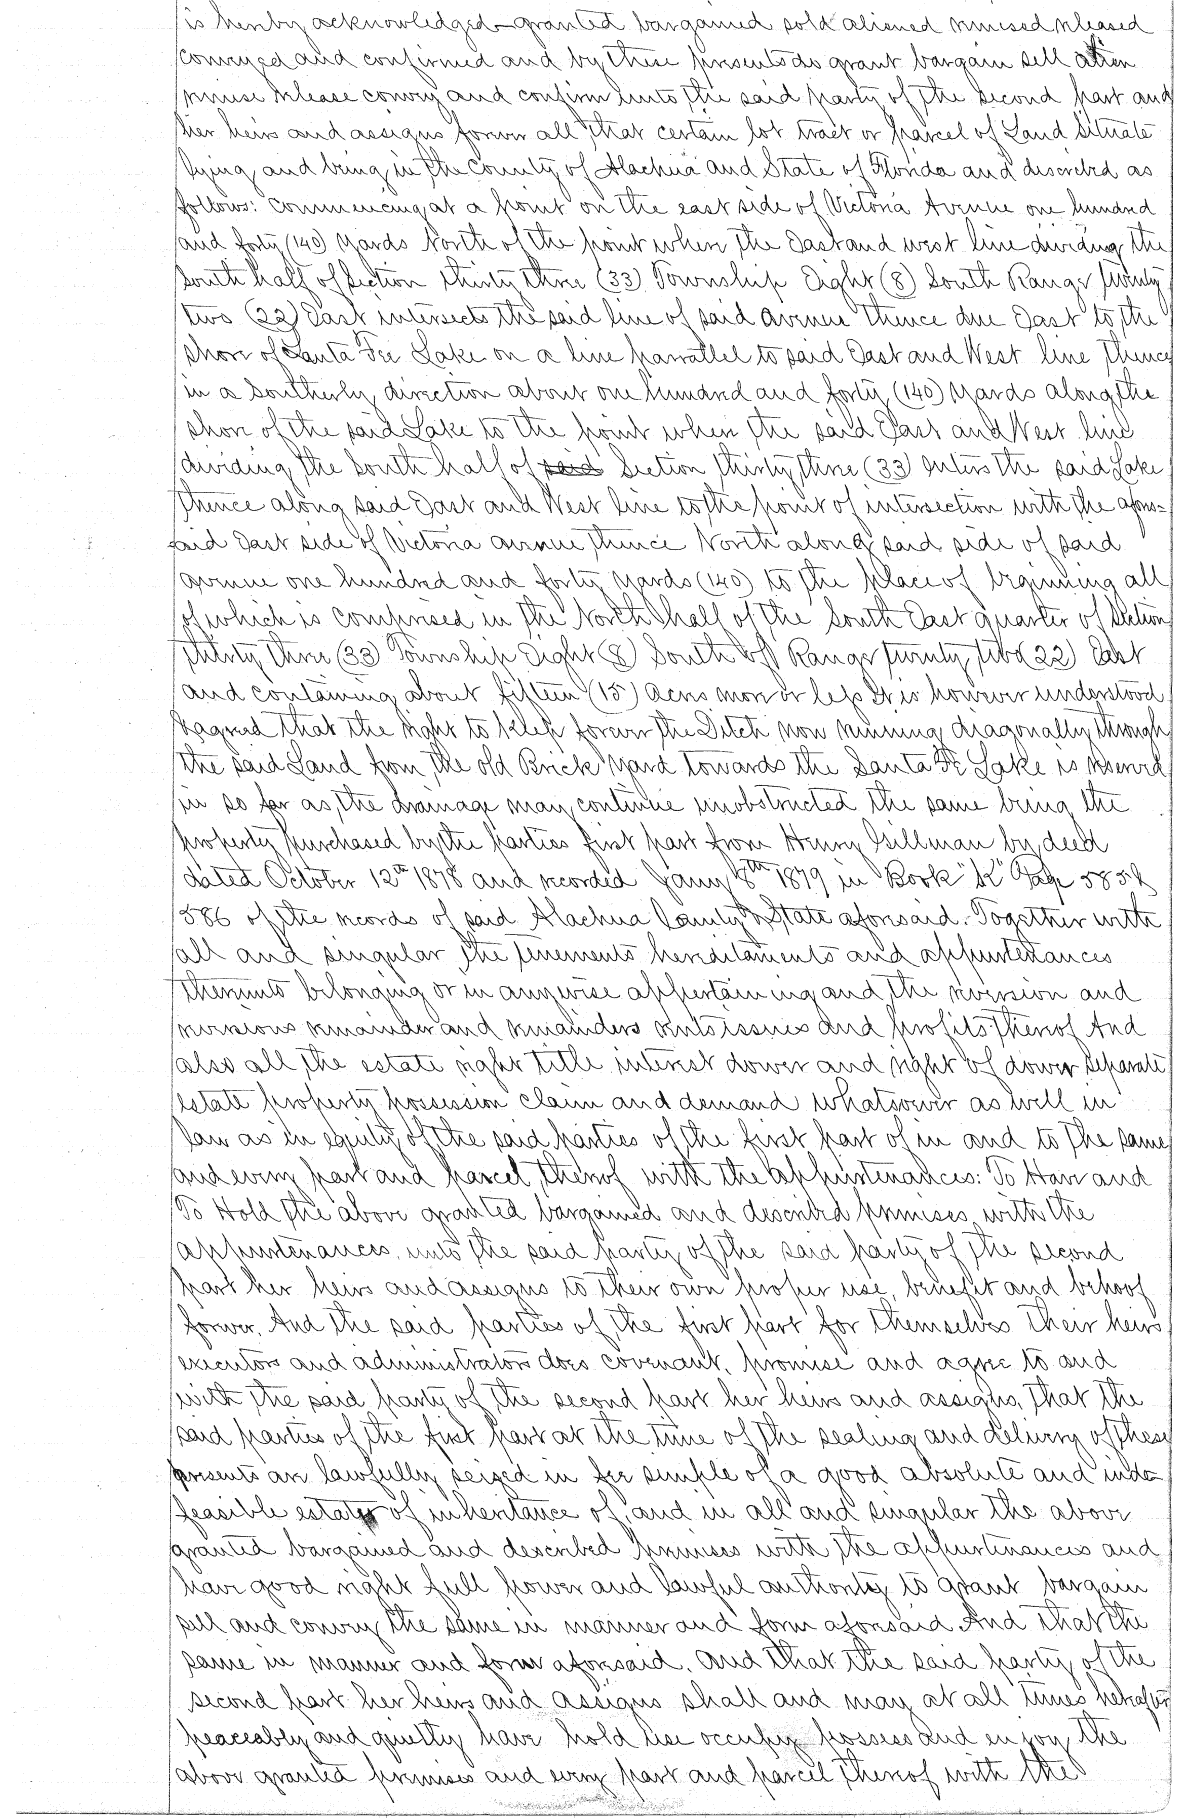 is hereby acknowledged granted bargained sold aliened remised released
conveyed and confirmed and by these presents do grant bargain sell alien
remise release convey and confirm unto the said party of the second part and
her heirs and assigns forever all that certain lot tract or parcel of Land Situate
lying and being in the County of Alachua and State of Florida and described as
follows: Commencing at a point on the east side of Victoria Avenue one hundred
and forty (140) Yards North of the point where the East and west line dividing the
South half of Section thirty three (33) Township Eight (8) South Range twenty
two (22) East intersects the said line of said avenue thence due East to the
Shore of Santa Fee Lake on a line parrallel to said East and West line thence
in a Southerly direction about one hundred and forty (140) Yards along the
Shore of the said Lake to the point where the said East and West line
dividing the South half of said Section thirty three (33) enters the said Lake
thence along said East and West line to the point of intersection with the afore=
said East side of Victoria avenue thence North along said side of said
avenue one hundred and forty Yards (140) to the place of beginning all
of which is comprised in the North half of the South East quarter of Section
thirty three (33) Township Eight (8) South of Range twenty two (22) East
and containing about fifteen (15) Acres more or less It is however understood
& agreed that the right to keep forever the Ditch now running diagonally through
the said Land from the old Brick Yard towards the Santa Fe Lake is reserved
in so far as the drainage may continue unobstructed the same being the
property purchased by the parties first part from Henry Gillman by deed
dated October 12th 1878 and recorded Jany 8th 1879 in Book "K" Page 585 &
586 of the records of said Alachua County & State aforesaid. Together with
all and singular the tenements hereditaments and appurtenances
thereunto belonging or in anywise appertaining and the reversion and
reversions remainder and remainders rents issues and profits thereof And
also all the estate right title interest dower and right of dower separate
estate property possession claim and demand whatsoever as well in
law as in equity of the said parties of the first part of in and to the same
and every part and parcel thereof with the appurtenances: To Have and
To Hold the above granted bargained and described premises with the
appurtenances, unto the said party of the said party of the second
part her heirs and assigns to their own proper use, benefit and behoof
forever. And the said parties of the first part for themselves their heirs
executors and administrators does covenant, promise and agree to and
with the said party of the second part her heirs and assigns, that the
said parties of the first part at the time of the sealing and delivery of these
presents are lawfully seized in fee simple of a good absolute and inde-
feasible estate of inheritance of, and in all and singular the above
granted bargained and described premises with the appurtenances and
have good right full power and lawful authority to grant bargain
sell and convey the same in manner and form aforesaid And that the
same in manner and form aforesaid. And that the said party of the
second part her heirs and assigns shall and may at all times hereafter
peaceably and quietly have hold use occupy possess and enjoy the
above granted premises and every part and parcel thereof with the